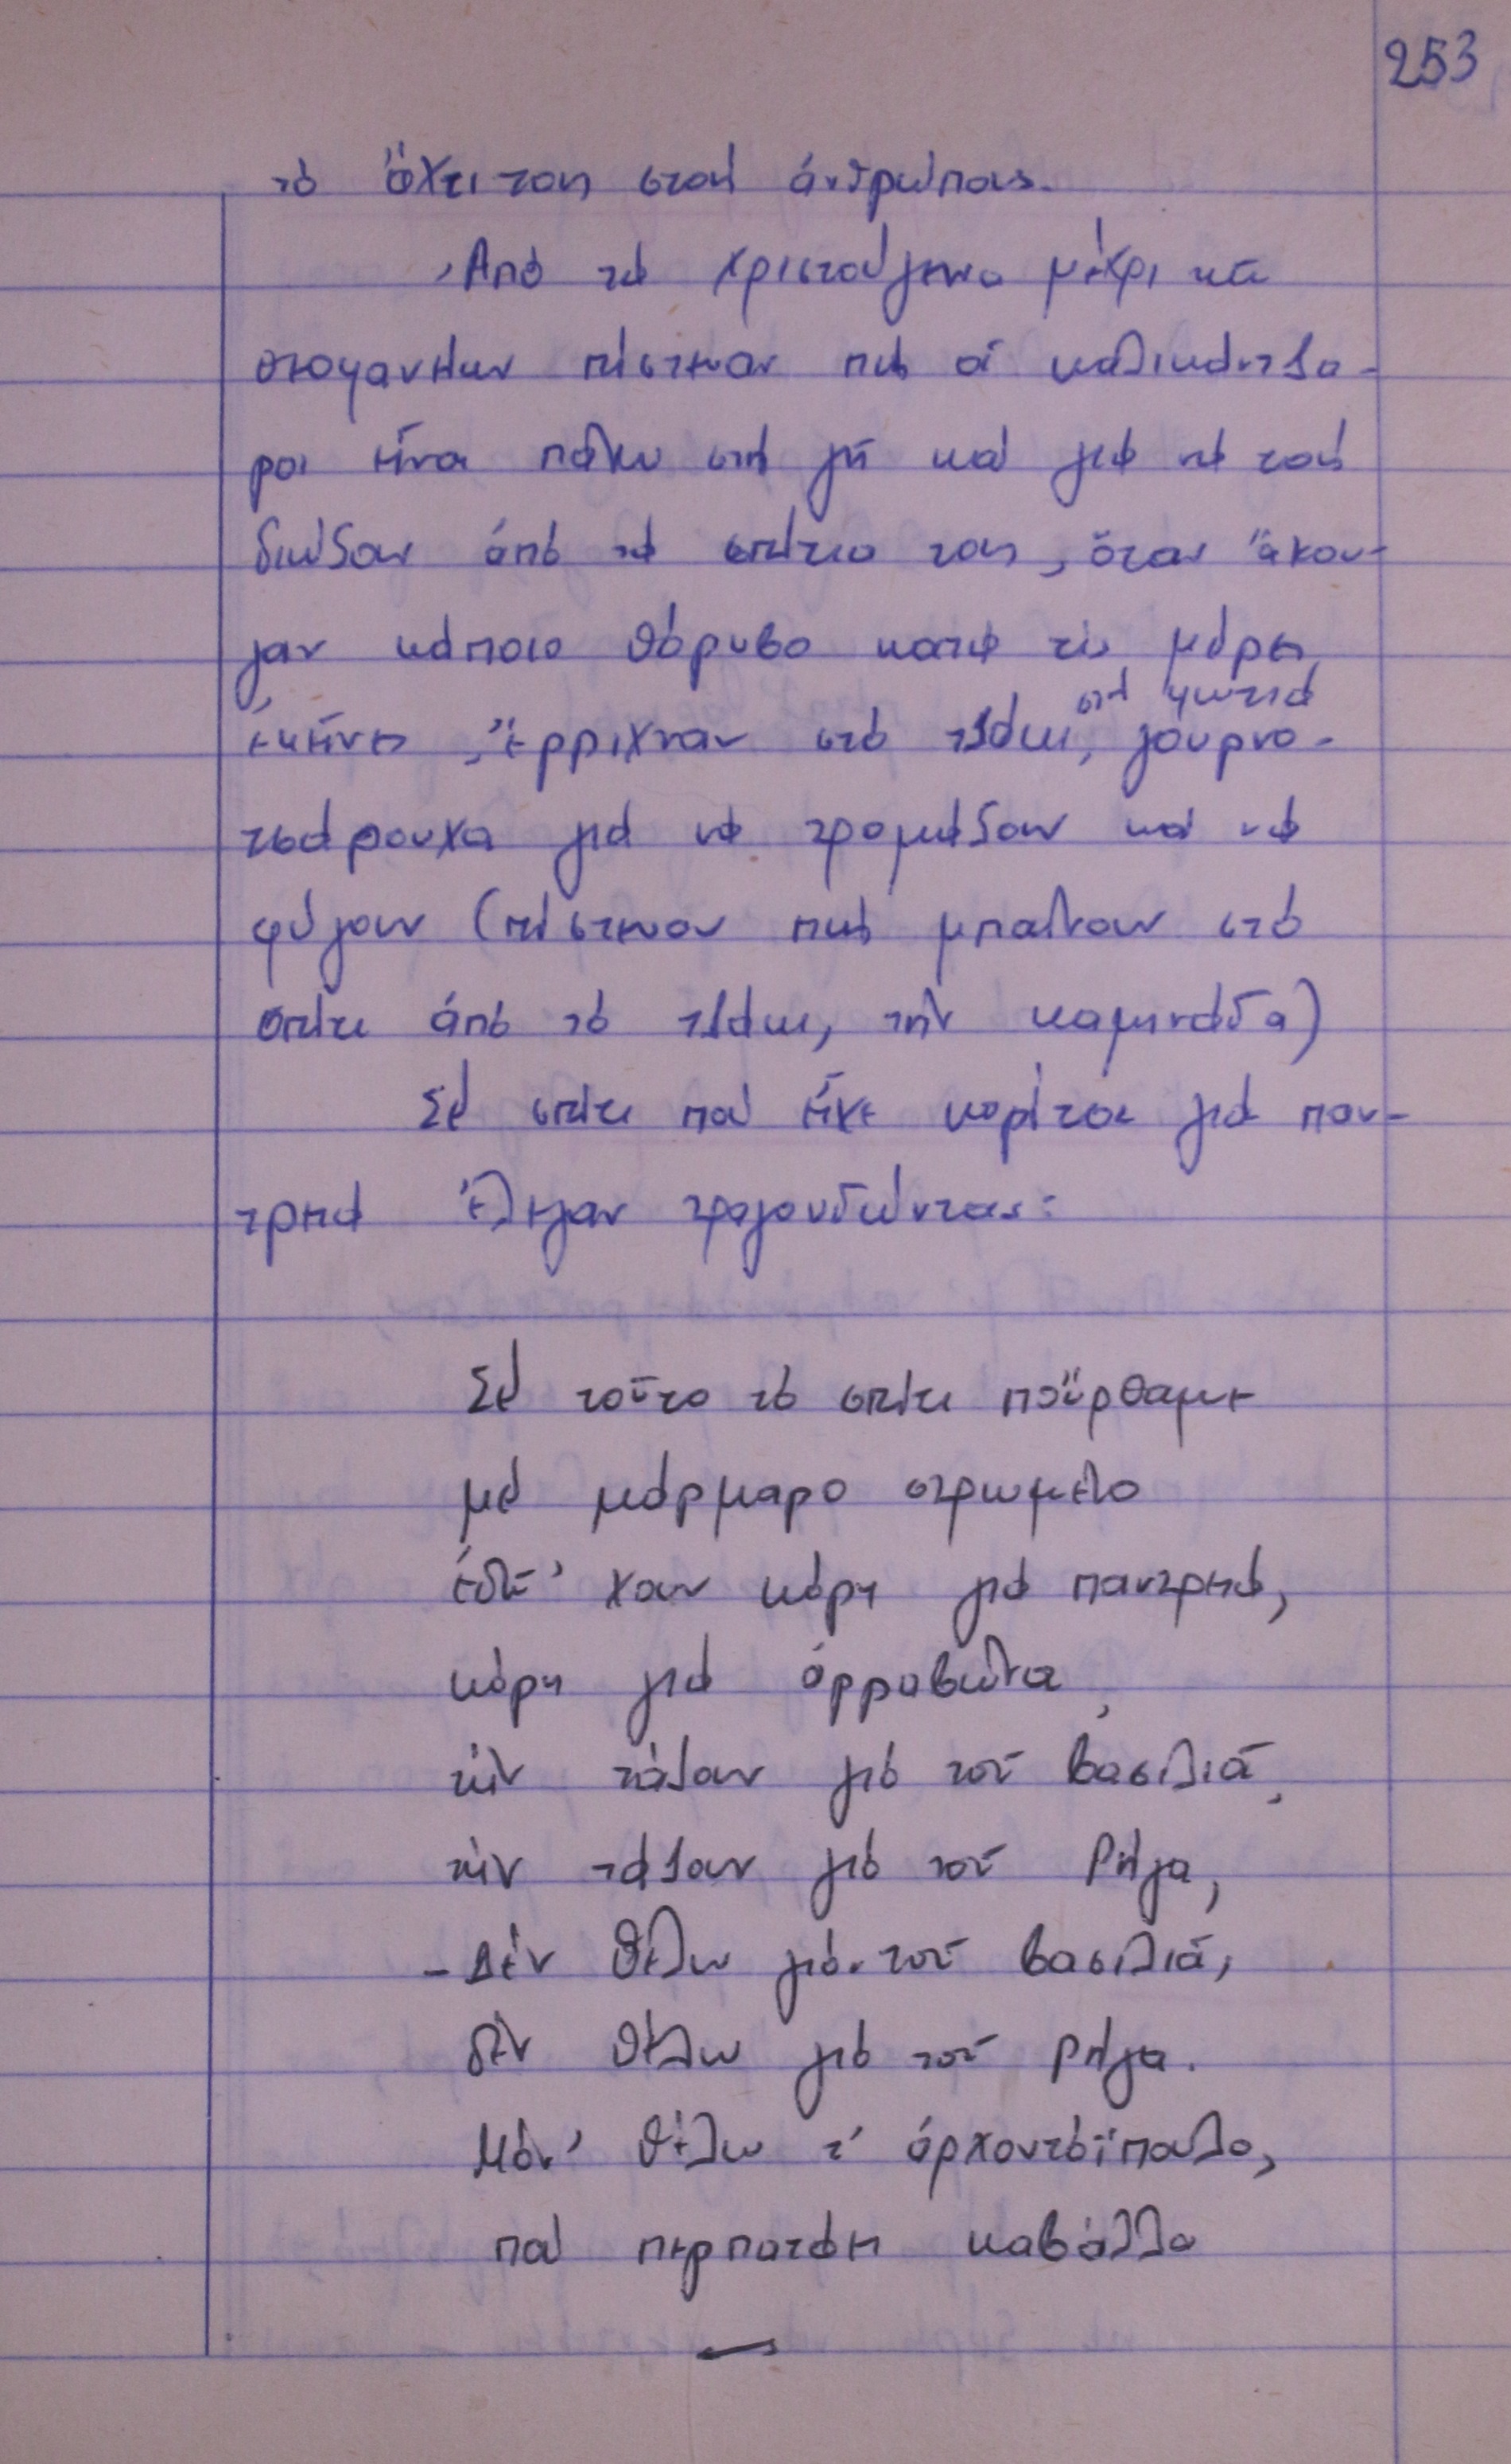 253
τό ἄχτι τους στούς ἀνθρώπους.
Ἀπό τά Χριστούγεννα μέχρι τῶν
Θεοφανείων πίστευαν πώς οἱ καλικάντζα-
ροι εἶναι πάνω στή γῆ καί γιά νά τούς
διώξουν ἀπό τά σπίτια τους, ὅταν ἄκου-
γαν κάποιο θόρυβο κατά τίς μέρες
στή φωτιά
ἐκεῖνες, ἔρριχναν στό τζάκι, γουρνο-
τσάρουχα γιά νά τρομάξουν καί νά
φύγουν (πίστευαν πώς μπαίνουν στό
σπίτι ἀπό τό τζάκι, τήν καμινάδα)
Σέ σπίτι πού εἶχε κορίτσι γιά παν-
τρειά ἔλεγαν τραγουδώντας:
Σέ τοῦτο τό σπίτι ποὔρθαμε
μέ μάρμαρο στρωμένο
ἐδῶ 'χουν κόρη γιά παντρειά,
κόρη γιά ἀρραβώνα,
τήν τάζουν γιό τοῦ βασιλιᾶ,
τήν τάζουν γιό τοῦ Ρήγα,
- Δέν θέλω γιό τοῦ βασιλιᾶ,
δέν θέλω γιό τοῦ Ρήγα.
Μόν' θέλω τ' ἀρχοντόϊπουλο,
πού περπατάει καβάλλα